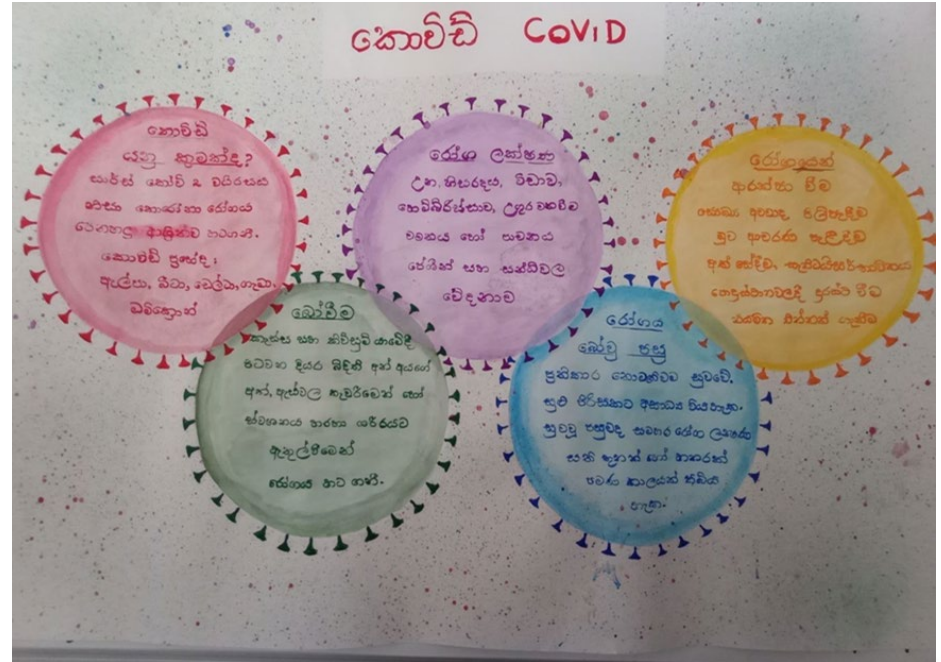 කොවිඩ් COVID
කොවිඩ්
යනු කුමක්ද?
සාර්ස් කෝවි 2 වයිරසය
කොරෝනා රෝගය
කොවිඩ් ප්‍රභේද:
ඇල්ෆා, බීටා, ඩෙල්ටා, ගැමා,
ඔමික්‍රොන්
රෝග ලක්ෂණ
උණ, හිසරදය, විඩාව,
හෙම්බිරිස්සාව, උගුර
වමනය හෝ පාචනය
පේශීන් සහ සන්ධිවල
වේදනාව
රෝගයෙන්
ආරක්ෂා වීම
සෞඛ්‍ය අවවාද පිලිපැදීම
මුව ආවරණ පැළදීම
අත් සේදීම,
දුරස්ථ වීම
එන්නත් ගැනීම
බෝවීම
කැස්ස සහ කිවිසුම් යාමේදී
පටවන දියර බිඳිති අන් අයගේ
අත්, ඇස්වල තැවරීමෙන් හෝ
ස්වශනය හරහා ශරීරයට
ඇතුල්වීමෙන්
රෝගය හට ගනී.
රෝගය
බෝවූ පසු
ප්‍රතිකාර නොමතිවම සුවවේ.
සුළු පිරිසකට අසාධ්‍ය විය හැක.
සුවවූ පසුවද සමහර රෝග ලක්ෂණ
සති දෙකක් හෝ හතරක්
පමණ කාලයක් තිබිය
හැක.